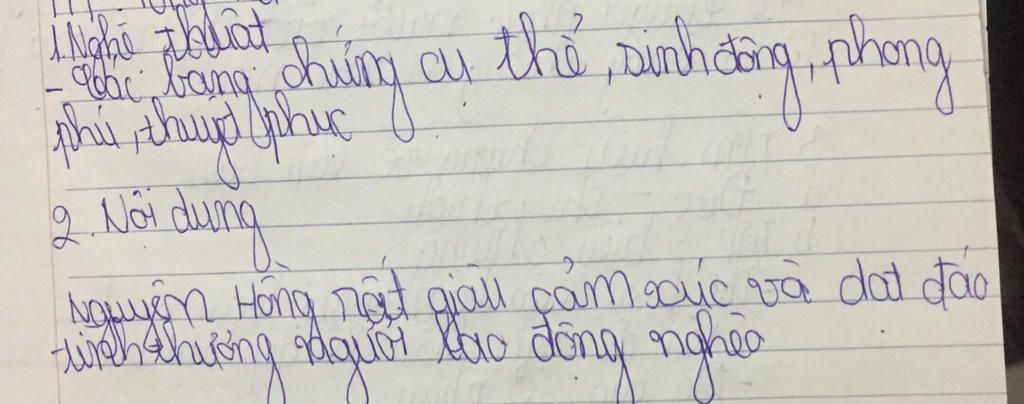 1. Nghệ thuật
- Các bằng chứng cụ thể, sinh động, phong
phú, thuyết phục
2. Nội dung
Nguyên Hồng rất giàu cảm xúc và dạt dào
tình thương người lao động nghèo